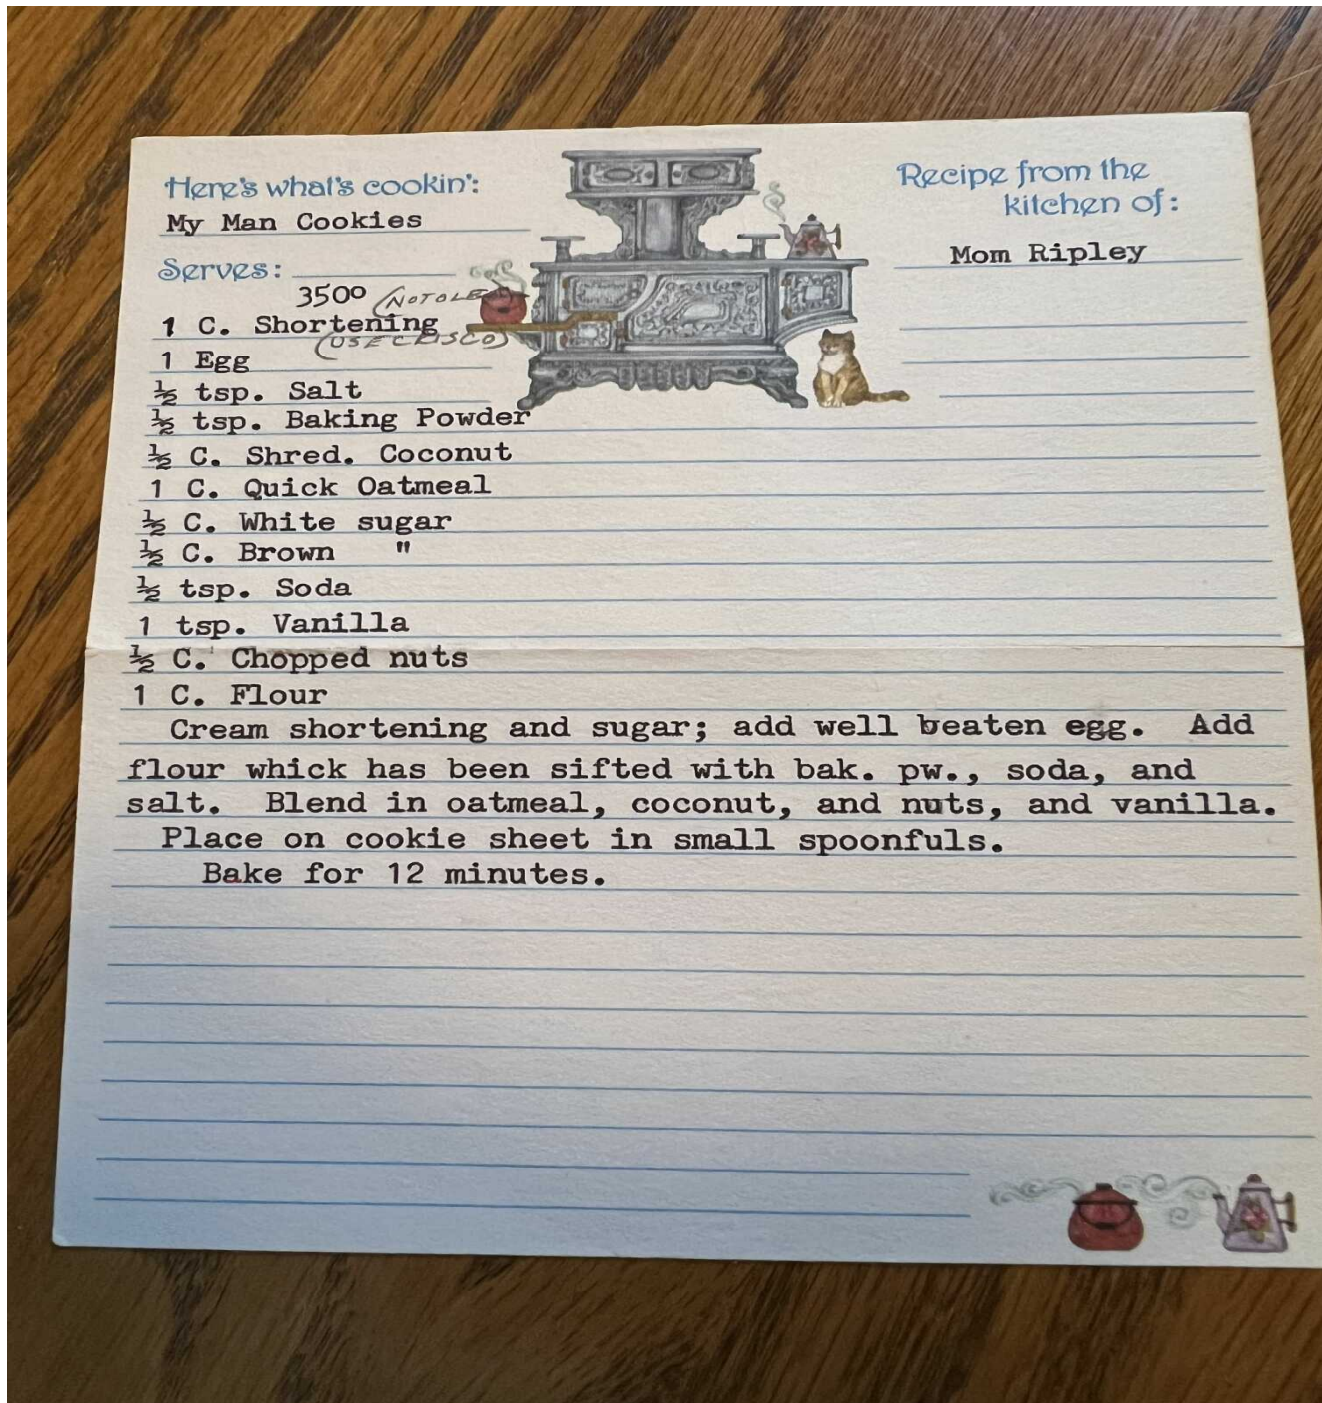 Here's what's cookin':
My Man Cookies
Recipe from the
kitchen of:
Mom Ripley
Serves:
350º (NO TOLEO)
1 C. Shortening
(USE CRISCO)
1 Egg
½ tsp. Salt
½ tsp. Baking Powder
½ C. Shred. Coconut
1 C. Quick Oatmeal
½ C. White sugar
½ C. Brown "
½ tsp. Soda
1 tsp. Vanilla
½ C. Chopped nuts
1 C. Flour
Cream shortening and sugar; add well beaten egg. Add
flour whick has been sifted with bak. pw., soda, and
salt. Blend in oatmeal, coconut, and nuts, and vanilla.
Place on cookie sheet in small spoonfuls.
Bake for 12 minutes.